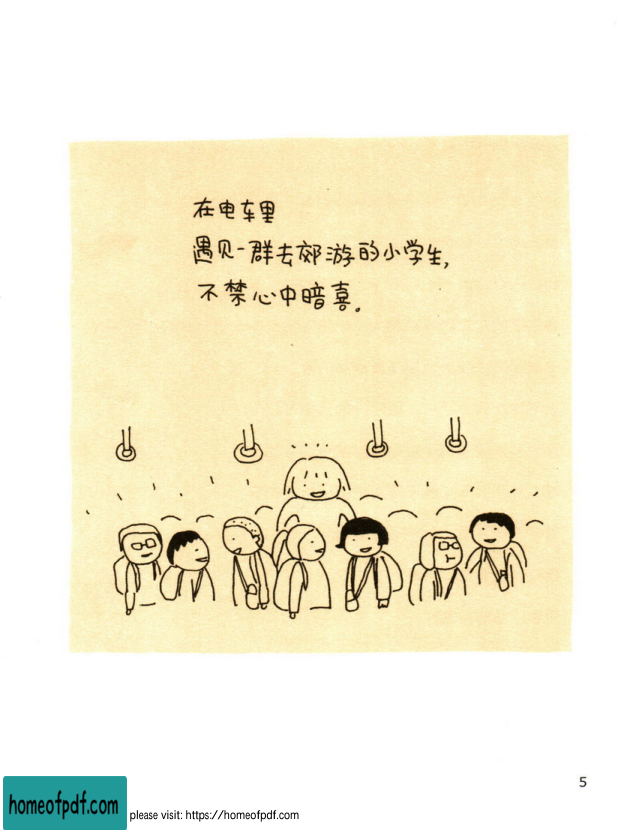 在电车里
遇见一群去郊游的小学生,
不禁心中暗喜。
5
homeofpdf.com
please visit: https://homeofpdf.com